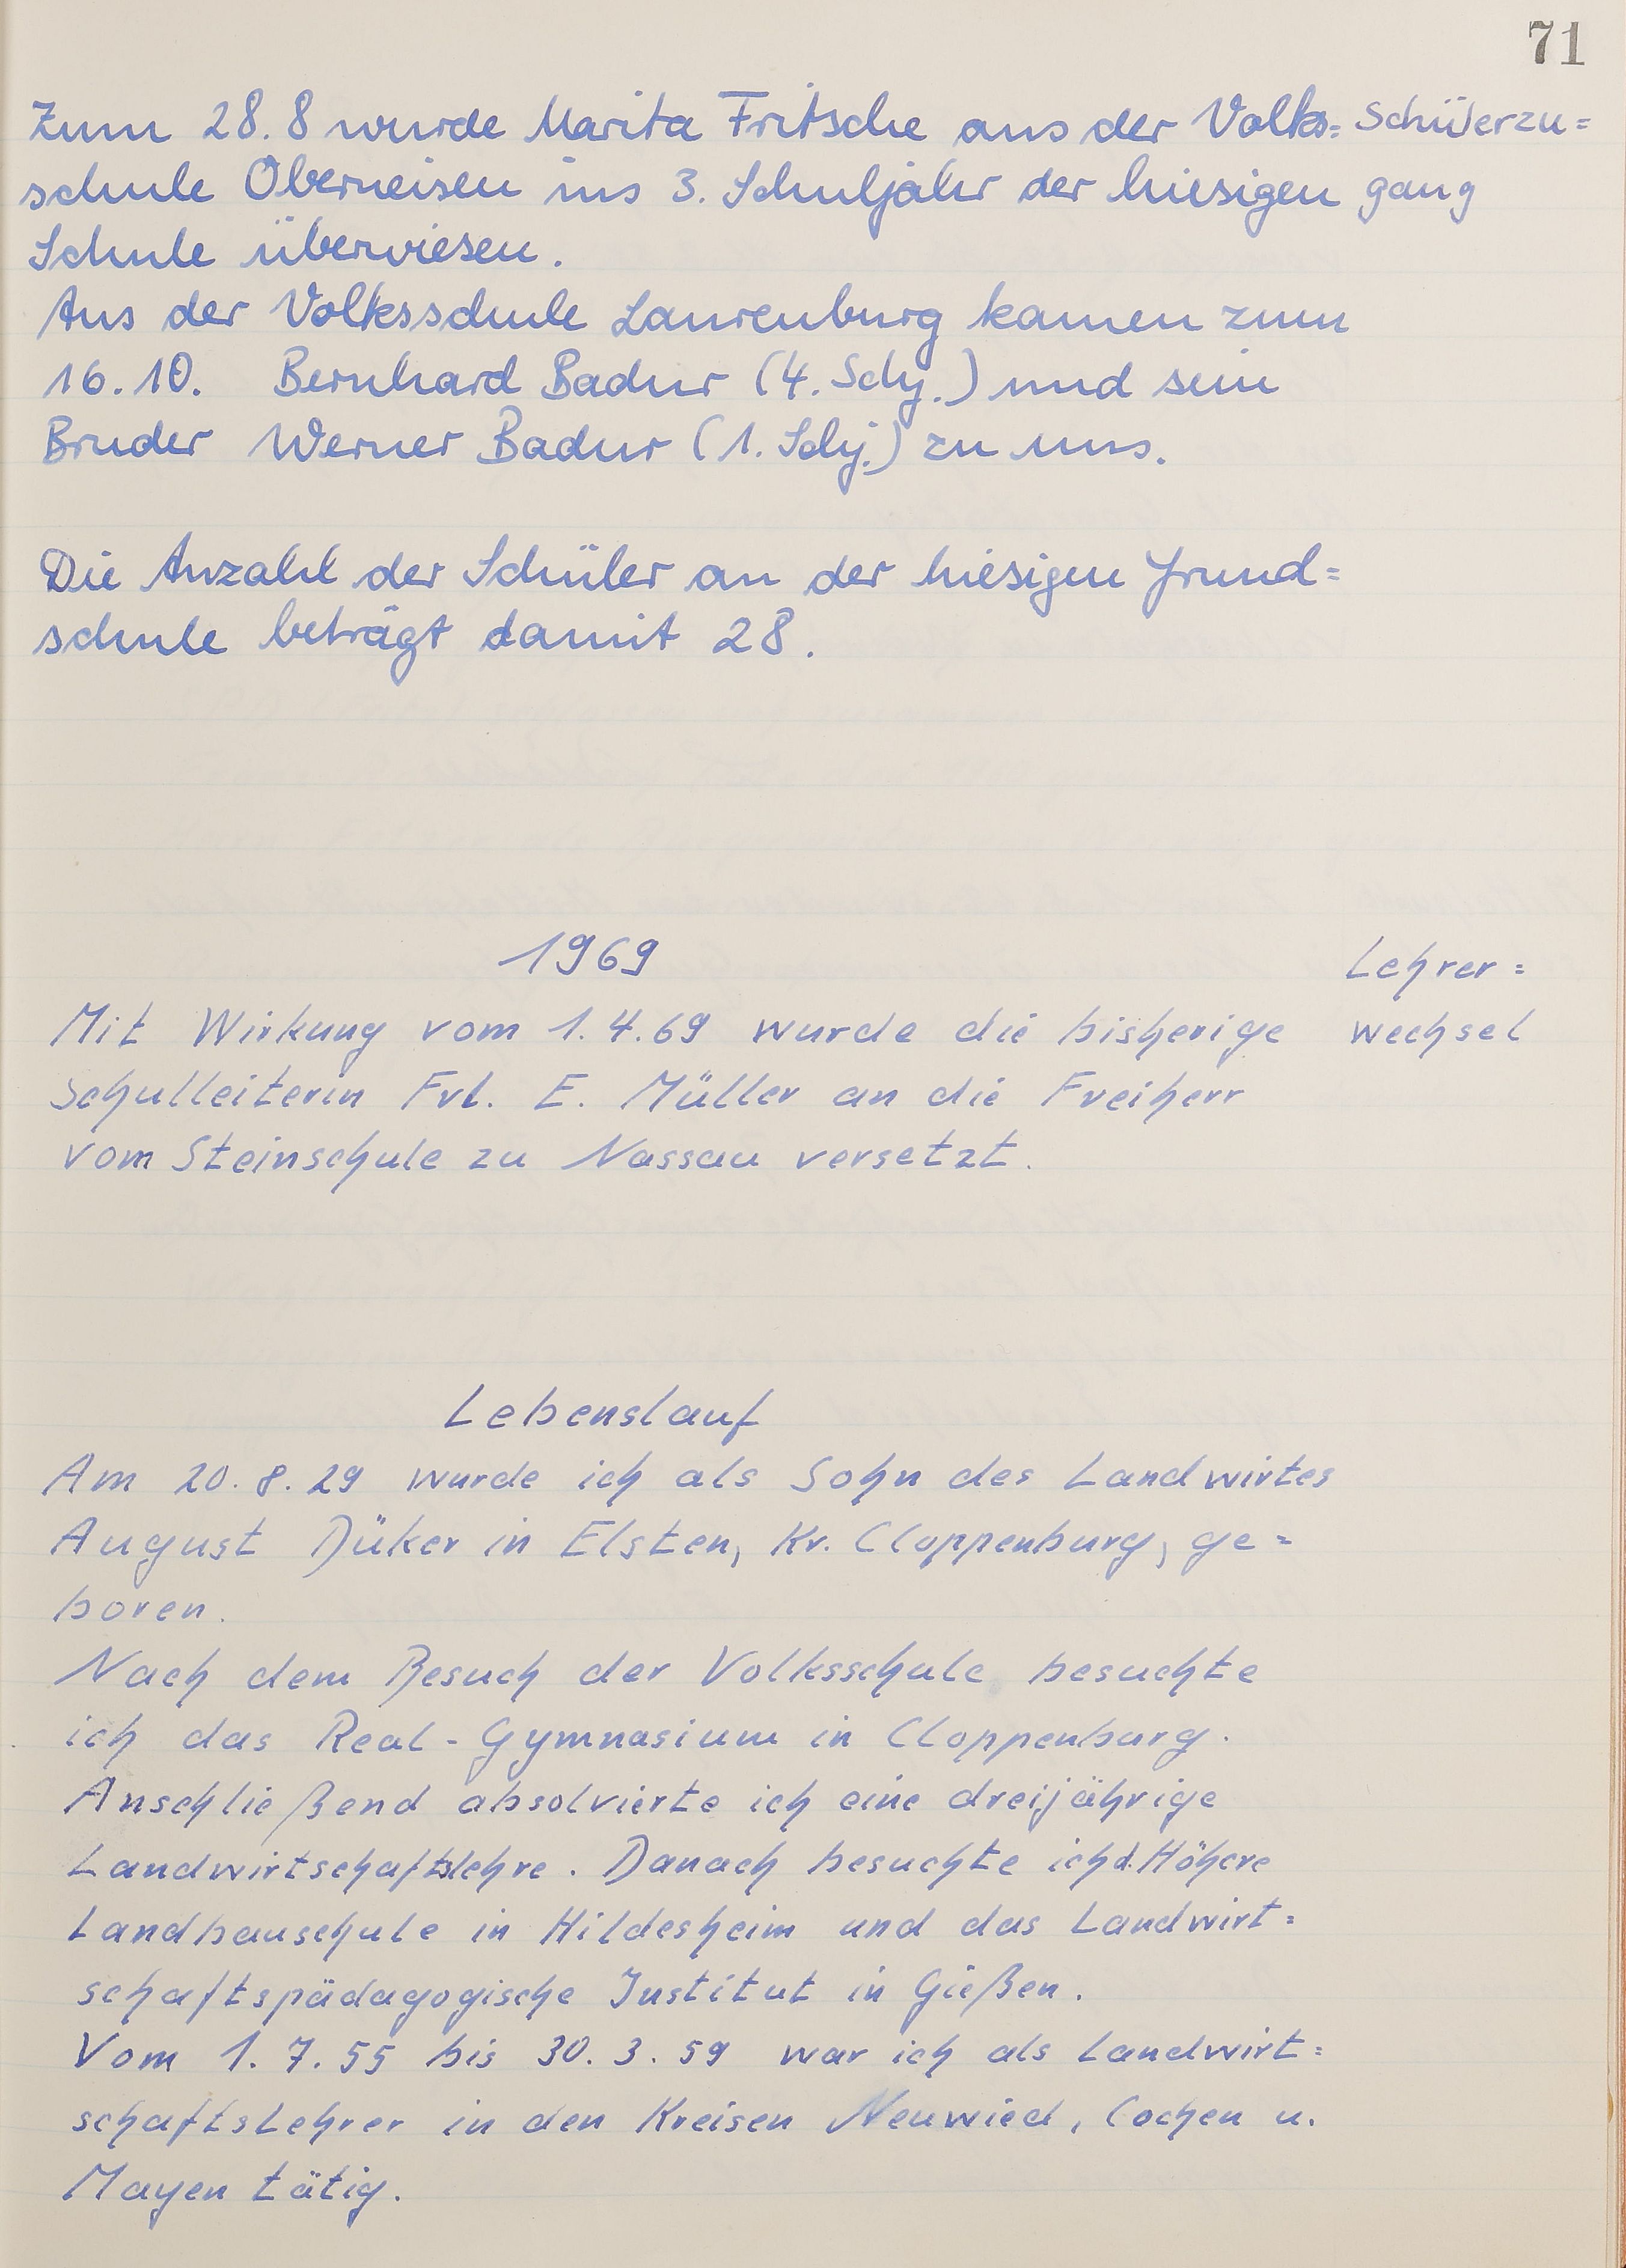 71
Zum 28. 8 wurde Marita Fritsche aus der Volks= Schülerzu=
schule Oberneisen ins 3. Schuljahr der hiesigen gang
Schule überwiesen.
Aus der Volksschule Laurenburg kamen zum
16. 10. Bernhard Badur (4. Schj.) und sein
Bruder Werner Badur (1. Schj.) zu uns.
Die Anzahl der Schüler an der hiesigen Grund=
schule beträgt damit 28.
1969 Lehrer=
Mit Wirkung vom 1. 4. 69 wurde die bisherige wechsel
Schulleiterin Frl. E. Müller an die Freiherr
vom Steinschule zu Nassau versetzt.
Lebenslauf
Am 20. 8. 29 wurde ich als Sohn des Landwirtes
August Düker in Elsten, Kr. Cloppenburg, ge=
boren.
Nach dem Besuch der Volksschule besuchte
ich das Real-Gymnasium in Cloppenburg.
Anschließend absolvierte ich eine dreijährige
Landwirtschaftslehre. Danach besuchte ich d. Höhere
Landbauschule in Hildesheim und das Landwirt=
schaftspädagogische Institut in Gießen.
Vom 1. 7. 55 bis 30. 3. 59 war ich als Landwirt=
schaftslehrer in den Kreisen Neuwied, Cochen u.
Mayen tätig.